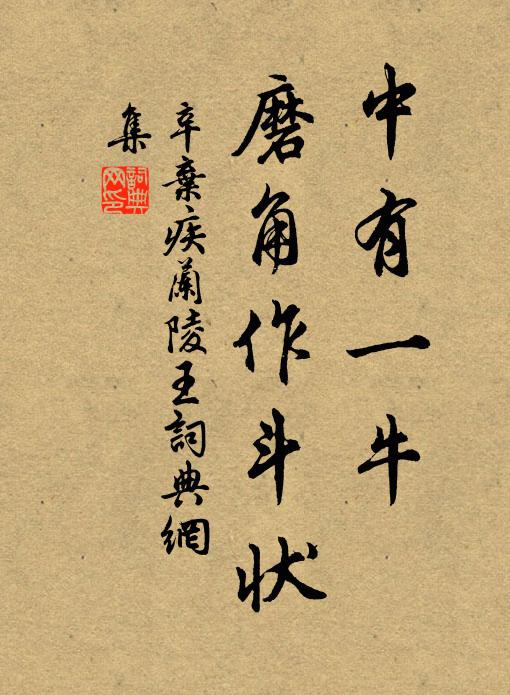 中有一牛
磨角作斗状
辛棄疾蘭陵王詞典網
集
詞典網印